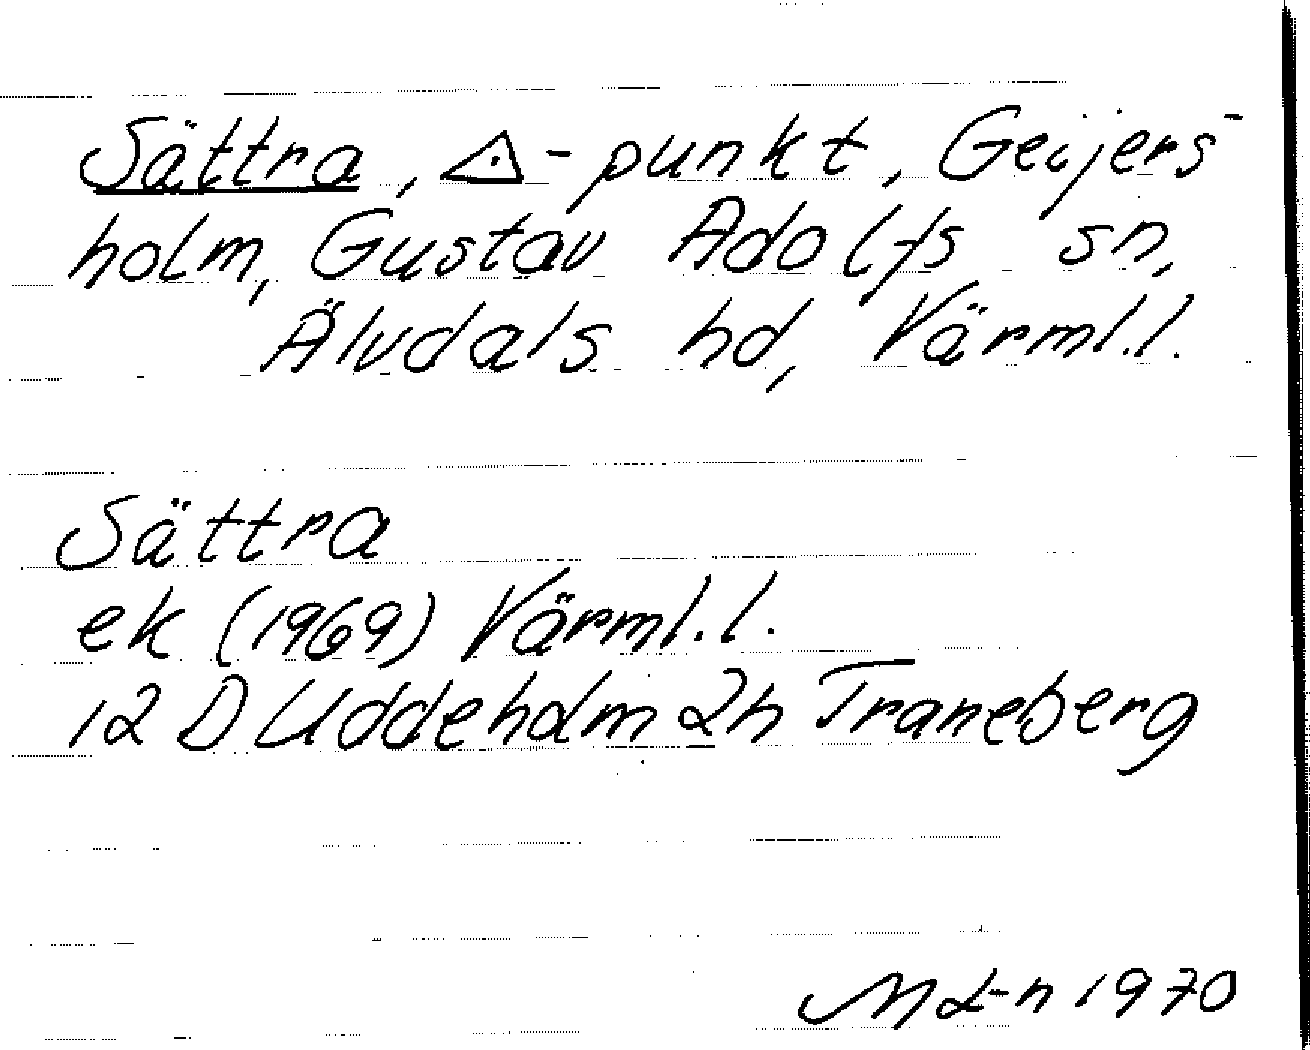 Sättra, △-punkt, Geijers-
holm, Gustav Adolfs sn,
Älvdals hd, Värml.l.
Sättra
ek (1969) Värml.l.
12 D Uddeholm 2h Traneberg
1970